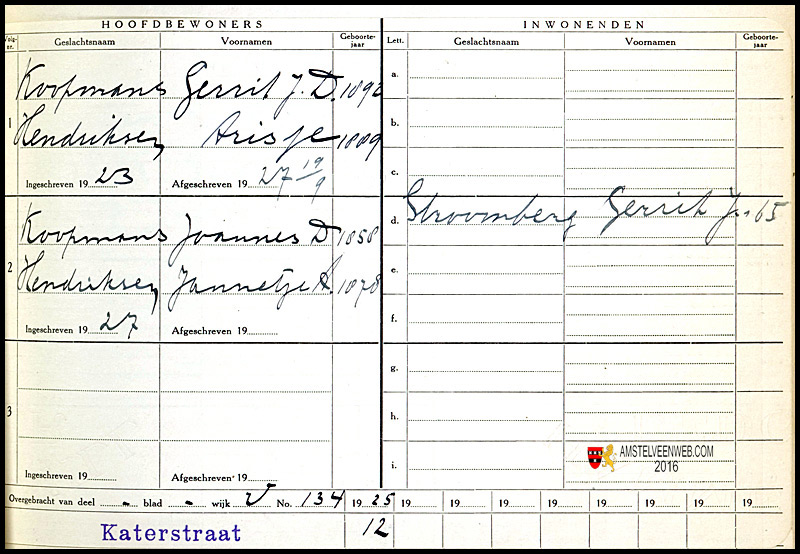 HOOFDBEWONERS
Volg-nr. Geslachtsnaam Voornamen Geboorte-jaar
Koopmans Gerrit J. D. 1892
1
Hendriksen, Arisje 1889
Ingeschreven 19 23 Afgeschreven 19 27 19/9
Koopmans Joannes D 1858
2
Hendriksen, Jannetje A. 1878
Ingeschreven 19 27 Afgeschreven 19
3
Ingeschreven 19 Afgeschreven 19
INWONENDEN
Lett. Geslachtsnaam Voornamen Geboorte-jaar
a.
b.
c.
d. Stroomberg Gerrit J. 65
e.
f.
g.
h.
i.
AMSTELVEENWEB.COM
2016
Overgebracht van deel - blad - wijk V No. 134 19 25 19 19 19 19 19 19 19 19
Katerstraat 12